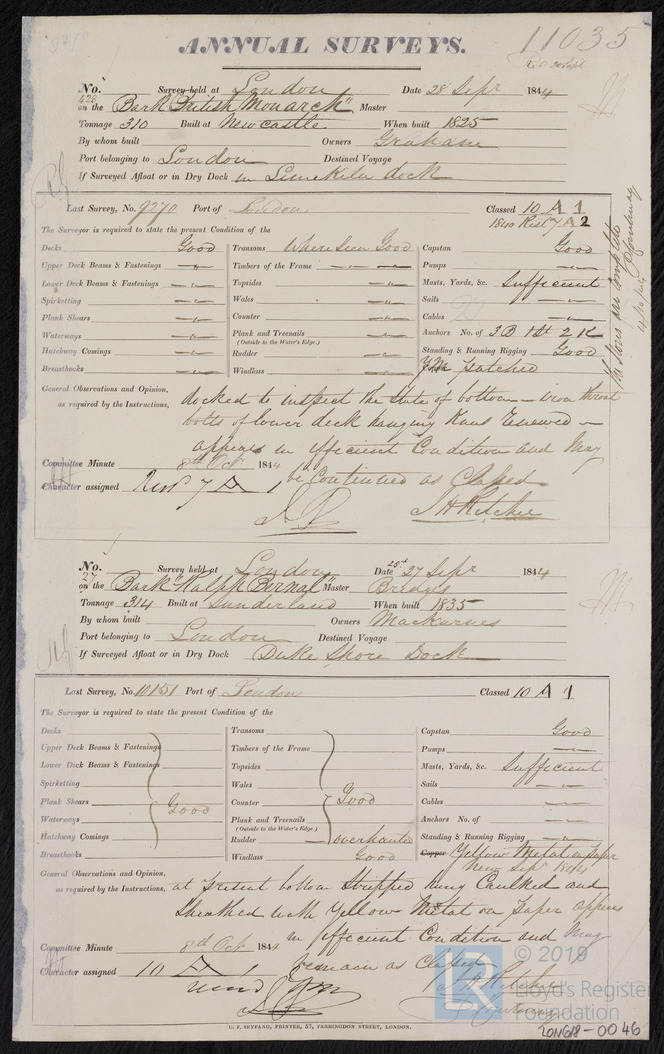 ANNUAL SURVEYS.
11035
No. 426 Survey held at London Date 28 Sepr 1844
on the Bark "British Monarch" Master
Tonnage 310 Built at Newcastle When built 1825
By whom built Owners Graham
Port belonging to London Destined Voyage
If Surveyed Afloat or in Dry Dock in Limekiln dock
Last Survey, No. 9270 Port of London Classed 10 A 1
1840 Rest 7 A 2
The Surveyor is required to state the present Condition of the
Decks Good Transoms Where seen Good Capstan Good
Upper Deck Beams & Fastenings Timbers of the Frame Pumps
Lower Deck Beams & Fastenings Topsides Masts, Yards, &c. Sufficient
Spirketting Wales Sails
Plank Shears Counter Cables
Waterways Plank and Treenails Anchors No. of 3 B 1 St 2 K
(Outside to the Water's Edge.)
Hatchway Comings Rudder Standing & Running Rigging Good
Breasthooks Windlass Y.M. patched
General Observations and Opinion, docked to inspect the state of bottom - iron throat
as required by the Instructions, bolts of lower deck hanging knees renewed -
appears in efficient Condition and may
Committee Minute 8th Oct 1844 be Continued as Classed
Character assigned Rest 7 A 1 J H Ritchie
No. 27 Survey held at London Date 25th 27 Sepr 1844
on the Bark "Ralph Bernal" Master Bridges
Tonnage 314 Built at Sunderland When built 1835
By whom built Owners
Port belonging to London Destined Voyage
If Surveyed Afloat or in Dry Dock Duke Shore Dock
Last Survey, No. 10151 Port of London Classed 10 A 1
The Surveyor is required to state the present Condition of the
Decks Transoms Capstan Good
Upper Deck Beams & Fastenings Timbers of the Frame Pumps
Lower Deck Beams & Fastenings Topsides Masts, Yards, &c. Sufficient
Spirketting Wales Sails
Plank Shears Good Counter Good Cables
Waterways Plank and Treenails Anchors No. of
(Outside to the Water's Edge.)
Hatchway Comings Rudder overhauled Standing & Running Rigging
Breasthooks Windlass Good Copper Yellow Metal on paper
New Sepr 1844
General Observations and Opinion, at present bottom Stripped hung Caulked and
as required by the Instructions, Sheathed with Yellow Metal on Paper appears
in efficient Condition and may
Committee Minute 8th Oct 1844 remain as Classed
Character assigned 10 A 1 J H Ritchie
C. F. SEYFANG, PRINTER, 57, FARRINGDON STREET, LONDON.
LR © 2019
Lloyd's Register
Foundation
LON618-0046